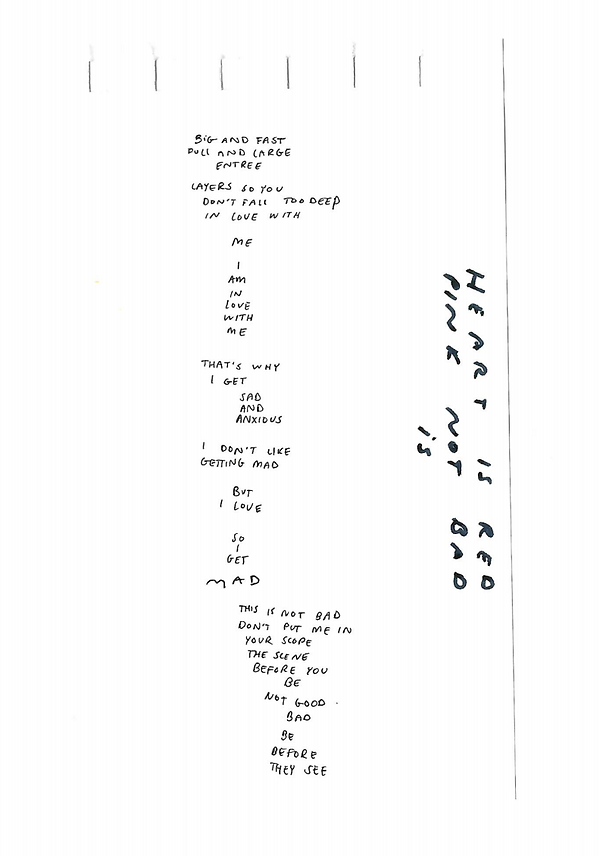 BIG AND FAST
PULL AND LARGE
ENTREE
LAYERS SO YOU
DON'T FALL TOO DEEP
IN LOVE WITH
ME
I
AM
IN
LOVE
WITH
ME
THAT'S WHY
I GET
SAD
AND
ANXIOUS
I DON'T LIKE
GETTING MAD
BUT
I LOVE
SO
I
GET
MAD
THIS IS NOT BAD
DON'T PUT ME IN
YOUR SCOPE
THE SCENE
BEFORE YOU
BE
NOT GOOD.
BAD
BE
BEFORE
THEY SEE
HEART IS RED
PINK NOT BAD
is